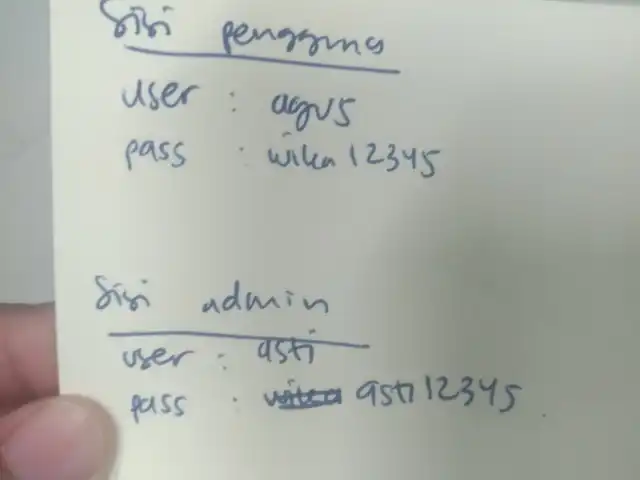 Sisi pengguna
user : agus
pass : wika12345
Sisi admin
user : asti
pass : asti12345